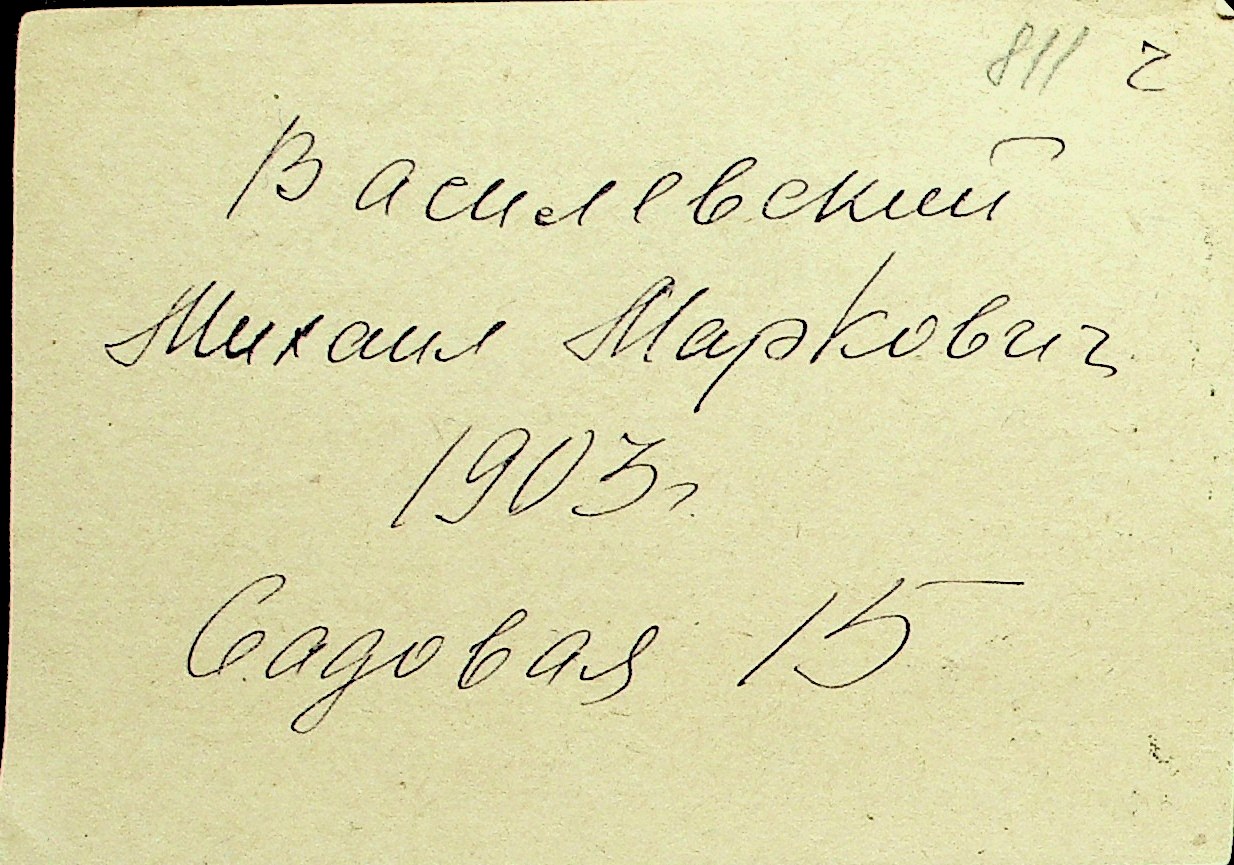 811 г
Василевский
Михаил Маркович
1903г.
Садовая 15